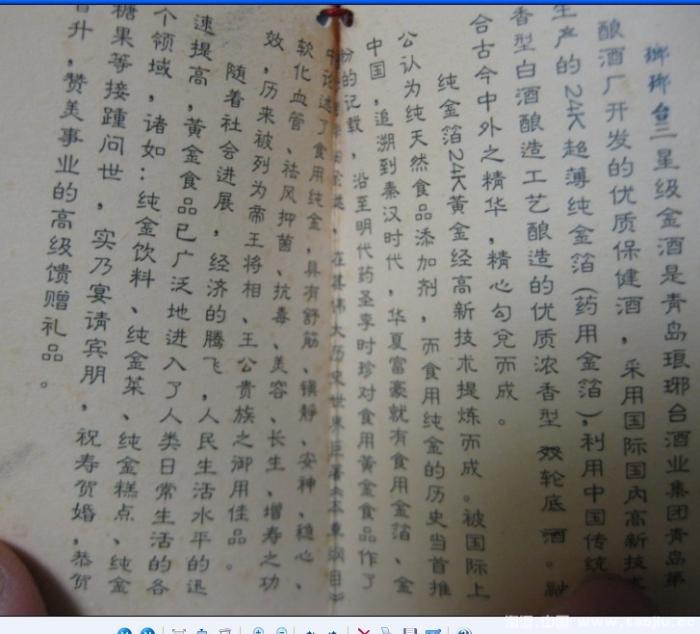 琅琊台三星级金酒是青岛琅琊台酒业集团青岛第
酿酒厂开发的优质保健酒，采用国际国内高新技术
生产的24K超薄纯金箔(药用金箔),利用中国传统
香型白酒酿造工艺酿造的优质浓香型双轮底酒。融
合古今中外之精华，精心勾兑而成。
纯金箔24K黄金经高新技术提炼而成。被国际上
公认为纯天然食品添加剂，而食用纯金的历史当首推
中国，追溯到秦汉时代，华夏富豪就有食用金箔、金
份的记载，沿至明代药圣李时珍对食用黄金食品作了
在其伟大历史世界巨著《本草纲目》
中论述了食用纯金，具有舒筋、镇静、安神、稳心、
软化血管、祛风抑菌、抗毒、美容、长生、增寿之功
效，历来被列为帝王将相、王公贵族之御用佳品。
随着社会进展，经济的腾飞，人民生活水平的迅
速提高，黄金食品已广泛地进入了人类日常生活的各
个领域，诸如：纯金饮料、纯金菜、纯金糕点、纯金
糖果等接踵问世，实乃宴请宾朋，祝寿贺婚，恭贺
晋升，赞美事业的高级馈赠礼品。
淘酒.中国 www.taojiu.cc